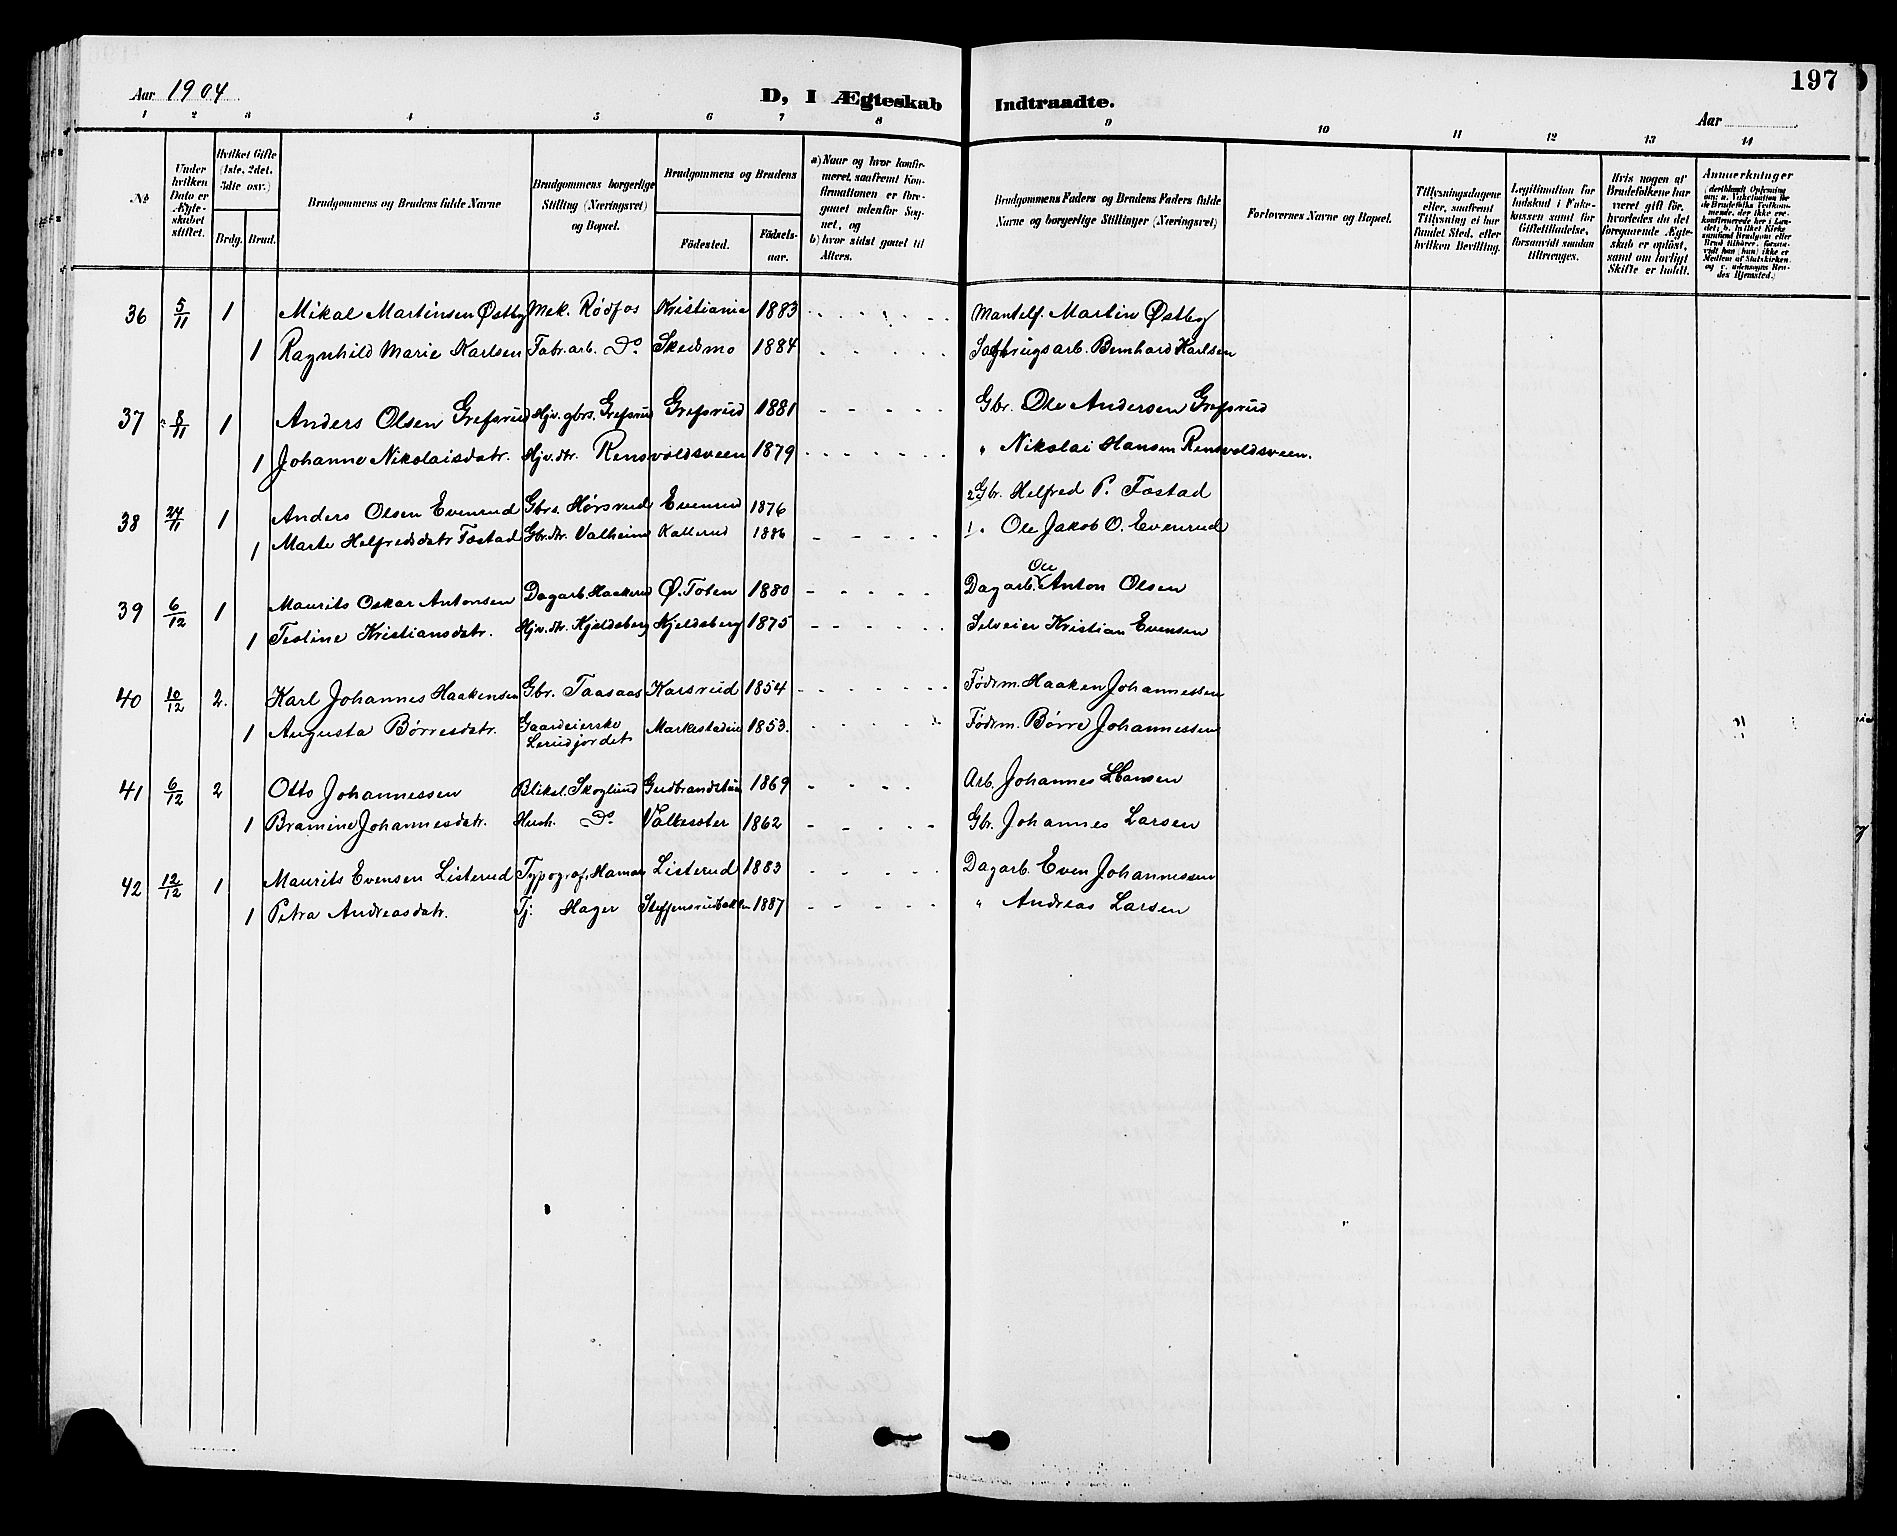 197
Aar 1904
D, I Ægteskab Indtraadte.
Aar
1 2 3 4 5 6 7 8 9 10 11 12 13 14
No
Under hvilken Dato er Ægteskabet stiftet.
Hvilket Gifte (1ste, 2det, 3die osv.)
Brdg. Brud.
Brudgommens og Brudens fulde Navne
Brudgommens borgerlige Stilling (Næringsvei) og Bopæl.
Brudgommens og Brudens
Fødested.
Fødselsaar.
a) Naar og hvor konfirmeret, saafremt Konfirmationen er foregaaet udenfor Sognet, og
b) hvor sidst gaaet til Alters.
Brudgommens Faders og Brudens Faders fulde Navne og borgerlige Stillinger (Næringsvei)
Forlovernes Navne og Bopæl.
Tillysningsdagene eller, saafremt Tillysning ei har fundet Sted, efter hvilken Bevilling.
Legitimation for Indskud i Enkekassen samt for Giftetilladelse, forsaavidt saadan tiltrænges.
Hvis nogen af Brudefolkene har været gift før, hvorledes da det foregaaende Ægteskab er opløst, samt om lovligt Skifte er holdt.
Anmærkninger
36 5/11 1 Mikal Martinsen Østby Mek. Rødfos Kristiania 1883 Mantelf. Martin Østby
1 Ragnhild Marie Karlsen Fabr.arb. Do Skedsmo 1884 Sagbrugsarb. Bernhard Karlsen
37 8/11 1 Anders Olsen Grefsrud Hjv. gbrs. Grefsrud Grefsrud 1881 Gbr. Ole Andersen Grefsrud
1 Johanne Nikolaisdatr. Hjv.dtr. Rensvoldsveen 1879 " Nikolai Hansen Rensvoldsveen.
38 24/11 1 Anders Olsen Evenrud Gbrs. Hørsrud Evenrud 1876 2 Gbr. Helfred P. Fostad
1 Marte Helfredsdatr Fostad Gbr.dtr. Valheim Kallerud 1886 1 " Ole Jakob O. Evenrud
39 6/12 1 Maurits Oskar Antonsen Dagarb. Haakerud Ø. Toten 1880 Dagarb. Ole Anton Olsen
1 Tesline Kristiansdatr. Hjv.dtr. Kjeldsberg Kjeldsberg 1875 Selveier Kristian Evensen
40 10/12 2. Karl Johannes Haakensen Gbr. Taasaas Karsrud 1854 Fødrm. Haaken Johannessen
1 Augusta Børresdatr. Gaardeierske Lerudjordet Markestadeie 1853. Fødrm. Børre Johannessen
41 6/12 2 Otto Johannessen Bliksl. Skoglund Gudbrandstun 1869 Arb. Johannes Hansen
1 Bramine Johannesdatr. Hush. Do Valkesøter 1862 Gbr. Johannes Larsen
42 12/12 1 Maurits Evensen Listerud Typograf, Hamar Listerud 1883 Dagarb. Even Johannessen
1 Petra Andreasdatr. Tj. Hager Steffensrudbakken 1887 " Andreas Larsen